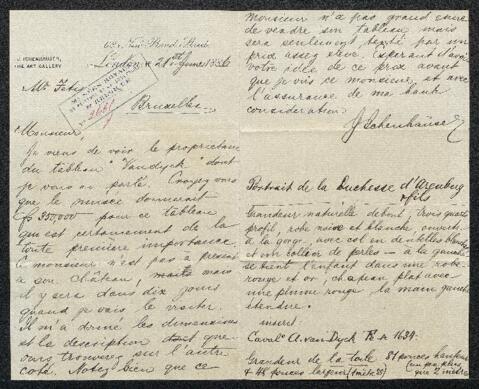 J. SCHENHÄUSER,
FINE ART GALLERY
62, New Bond Street
London le 28 June 1886
Mr Fétis
Bruxelles
2681
Monsieur,
Je viens de voir le propriétaire
du tableau "Vandyck" dont
je vous ai parlé. Croyez vous
que le musée donnerait
350,000 pour ce tableau
qui est certainement de la
toute première importance.
Le monsieur n'est pas à présent
à son château, mais
il y sera dans dix jours
quand je vais le visiter.
Il m'a donné les dimensions
et la description que
vous trouverez sur l'autre
côté. Notez bien que ce
monsieur n'a pas grand envie
de vendre son tableau mais
sera seulement tenté par un
prix assez élevé. Espérant d'avoir
votre idée de ce prix avant
que je vois ce monsieur, et avec
l'assurance de ma haute
considération
J Schenhäuser
Portrait de la Duchesse d'Arenberg
& fils
Grandeur naturelle debout, trois quart
profil, robe noire et blanche, ouverte
à la gorge, avec col en dentelles blanches
et un collier de perles — à la gauche
se tient l'enfant dans une robe
rouge et or, chapeau plat avec
une plume rouge la main gauche
étendre.
inscrit
Caval. A. van Dyck Ft A 1634.
Grandeur de la toile 81 pouces hauteur
(un peu plus
que 2 mètres)
& 48 pouces largeur